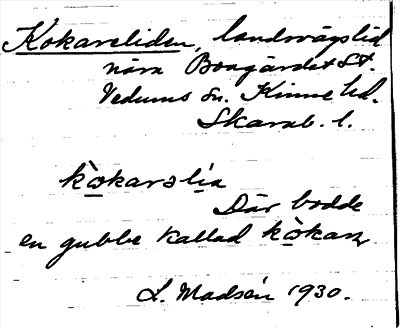 Kokareliden, landsvägslid
nära Boagärdet St.
Vedums sn. Kinne hd.
Skarab. l.
kòkarslia
Där bodde
en gubbe kallad kòkarn
L. Madsén 1930.